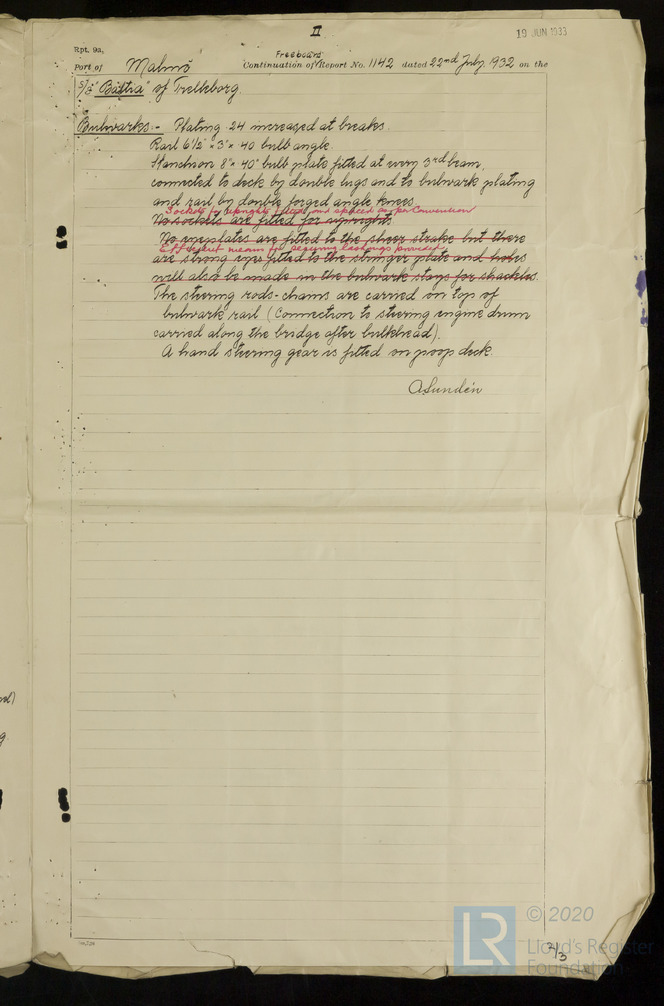 II
19 JUN 1933
Rpt. 9a.
Port of Malmö Freeboard Continuation of Report No. 1142 dated 22nd July, 1932 on the
S/S "Baltia" of Trelleborg.
Bulwarks:- Plating 24 increased at breaks.
Rail 6 1/2" × 3" × 40 bulb angle.
Stanchion 8" × 40" bulb plate fitted at every 3rd beam,
connected to deck by double lugs and to bulwark plating
and rail by double forged angle knees.
Sockets for uprights fitted and spaced as per Convention
No sockets are fitted for uprights
No eyeplates are fitted to the sheer strake but there
Efficient means for securing lashings provided
are strong eyes fitted to the stringer plate and holes
will also be made in the bulwark stays for shackles.
The steering rods-chains are carried on top of
bulwark rail (Connection to steering engine drum
carried along the bridge after bulkhead).
A hand steering gear is fitted on poop deck.
ASundén
2/3
LR © 2020
Lloyd's Register
Foundation